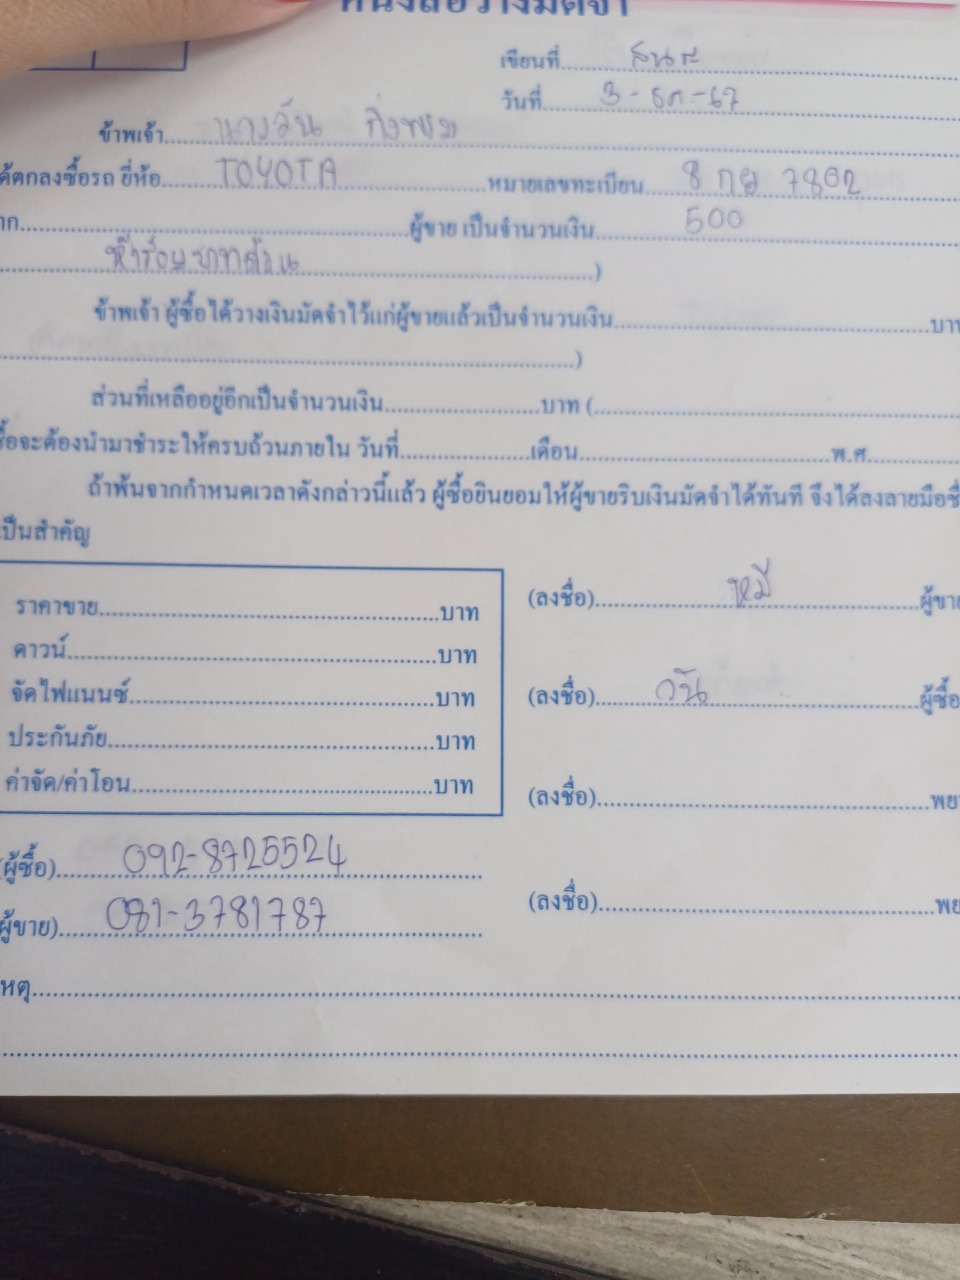 หนังสือวางมัดจำ
เขียนที่
วันที่ 3-ธค-67
ข้าพเจ้า นางวัน
ตกลงซื้อรถ ยี่ห้อ TOYOTA หมายเลขทะเบียน 8 กย 7802
ผู้ขาย เป็นจำนวนเงิน 500
ห้าร้อยบาทถ้วน )
ข้าพเจ้า ผู้ซื้อได้วางเงินมัดจำไว้แก่ผู้ขายแล้วเป็นจำนวนเงิน บา
)
ส่วนที่เหลืออยู่อีกเป็นจำนวนเงิน บาท (
จะต้องนำมาชำระให้ครบถ้วนภายใน วันที่ เดือน พ.ศ.
ถ้าพ้นจากกำหนดเวลาดังกล่าวนี้แล้ว ผู้ซื้อยินยอมให้ผู้ขายริบเงินมัดจำได้ทันที จึงได้ลงลายมือชื่
เป็นสำคัญ
ราคาขาย บาท
ดาวน์ บาท
จัดไฟแนนซ์ บาท
ประกันภัย บาท
ค่าจัด/ค่าโอน บาท
(ลงชื่อ) หมี ผู้ขาย
(ลงชื่อ) วัน ผู้ซื้อ
(ลงชื่อ) พย
(ลงชื่อ) พย
(ผู้ซื้อ) 092-8725524
ผู้ขาย) 081-3781787
หตุ